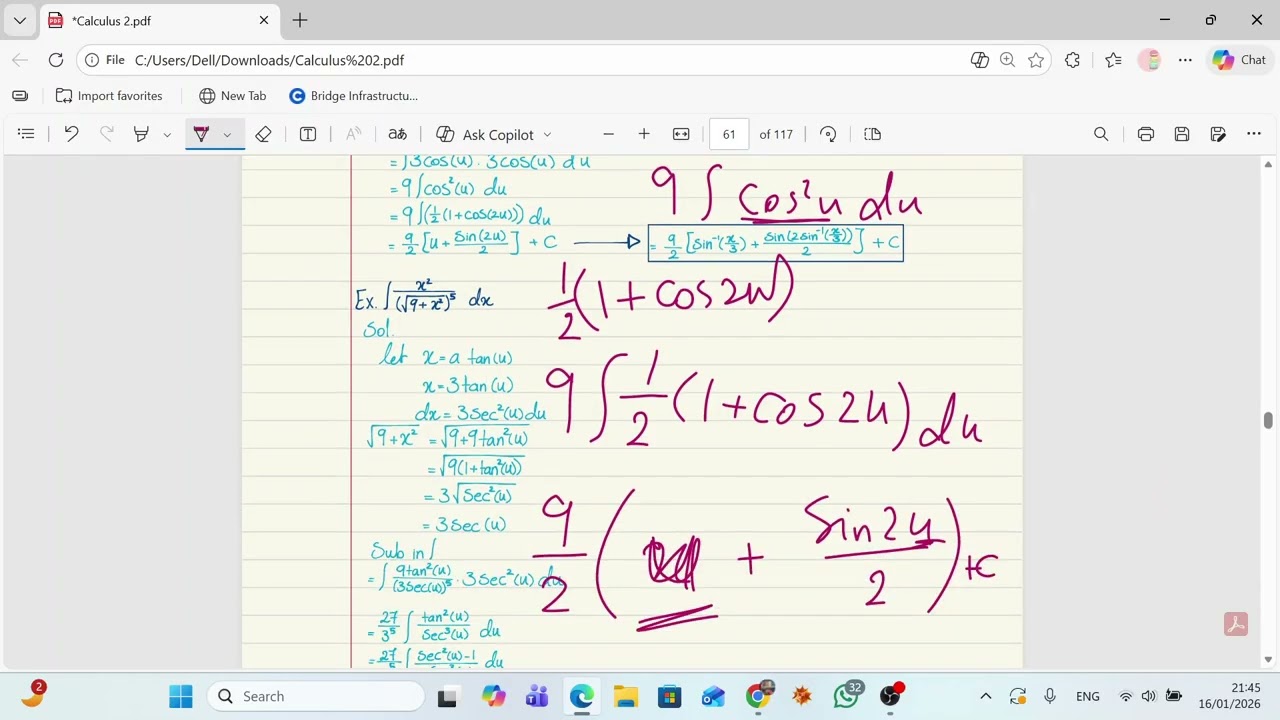 *Calculus 2.pdf
File C:/Users/Dell/Downloads/Calculus%202.pdf
Chat
Import favorites New Tab Bridge Infrastructu...
Ask Copilot 61 of 117
= ∫3cos(u) · 3cos(u) du
= 9∫cos²(u) du
= 9∫(½(1+cos(2u))) du
= 9/2 [u + sin(2u)/2] + C → = 9/2 [sin⁻¹(x/3) + sin(2sin⁻¹(x/3))/2] + C
Ex. ∫ x²/(√9+x²)⁵ dx
Sol.
let x = a tan(u)
x = 3 tan(u)
dx = 3sec²(u) du
√9+x² = √9+9tan²(u)
= √9(1+tan²(u))
= 3√sec²(u)
= 3sec(u)
Sub in ∫
= ∫ 9tan²(u)/(3sec(u))⁵ · 3sec²(u) du
= 27/3⁵ ∫ tan²(u)/sec³(u) du
9 ∫ cos²u du
1/2 (1 + cos2u)
9 ∫ 1/2 (1 + cos2u) du
9/2 ( + sin2u/2 ) + C
2
Search
32
ENG
21:45
16/01/2026